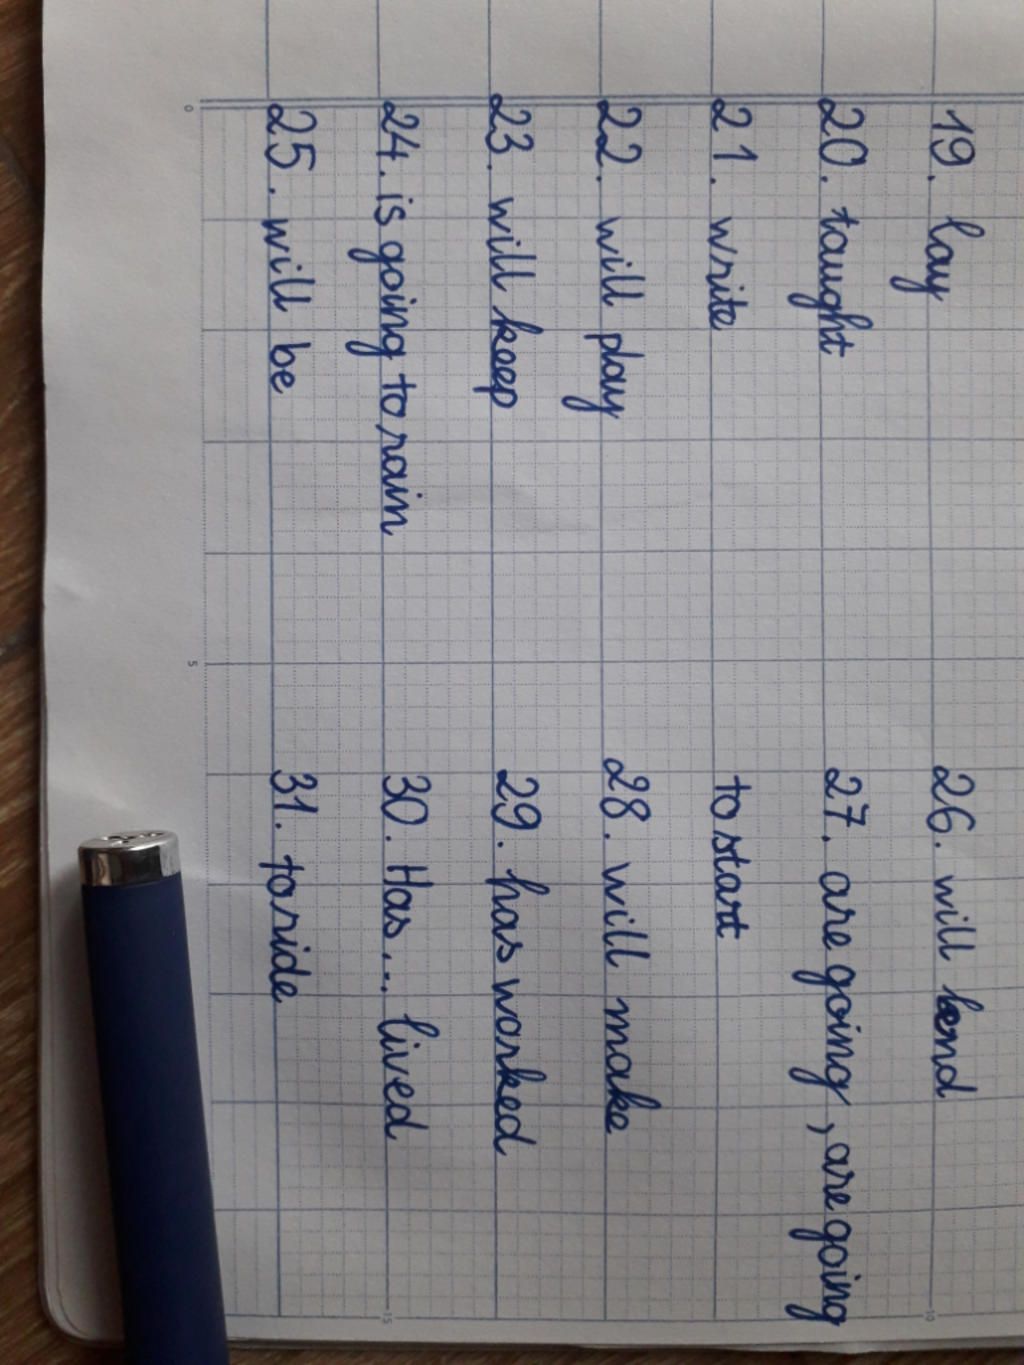 19. lay
20. taught
21. write
22. will play
23. will keep
24. is going to rain
25. will be
26. will lend
27. are going, are going
to start
28. will make
29. has worked
30. Has... lived
31. to ride
0
5
10
15